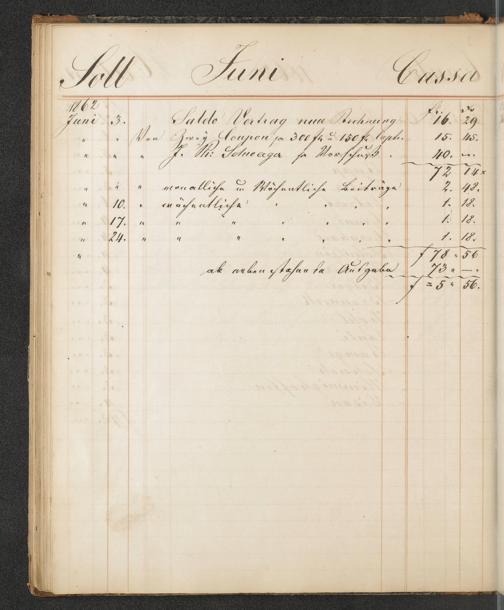 Soll Juni Cassa
1862 fr. Xr
Juni 3. Saldo Vortrag neue Rechnung 16. 29.
" " Von Zwey Coupon fr 300 fr u 150 fr 15. 45.
" " " J. Schwager fr Vorschuß 40. —.
72 14
" " " monatliche u Wöchentliche Beiträge 2. 48.
" 10. " wöchentliche " " " 1. 18.
" 17. " " " " " 1. 18.
" 24. " " " " " 1. 18.
" f 78 " 56
ab nebenstehende Ausgabe 73 " —.
f = 5 " 56.